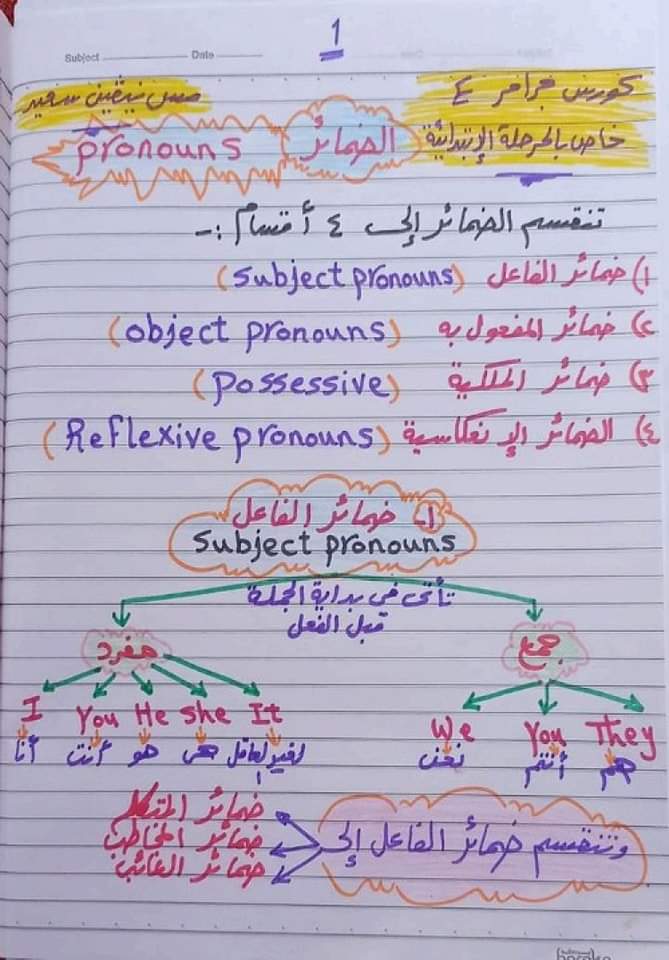 1
Subject
Date
كورس جرامر ٤
مس نيڤين سعيد
خاص بالمرحلة الإبتدائية
الضمائر pronouns
تنقسم الضمائر إلى ٤ أقسام :-
١) ضمائر الفاعل (subject pronouns)
٢) ضمائر المفعول به (object pronouns)
٣) ضمائر الملكية (Possessive)
٤) الضمائر الإنعكاسية (Reflexive pronouns)
١- ضمائر الفاعل
Subject pronouns
تأتى فى بداية الجملة
قبل الفعل
جمع
مفرد
I You He she It
We You They
أنا أنت هو هى لغير العاقل
نحن أنتم هم
وتنقسم ضمائر الفاعل إلى
ضمائر المتكلم
ضمائر المخاطب
ضمائر الغائب